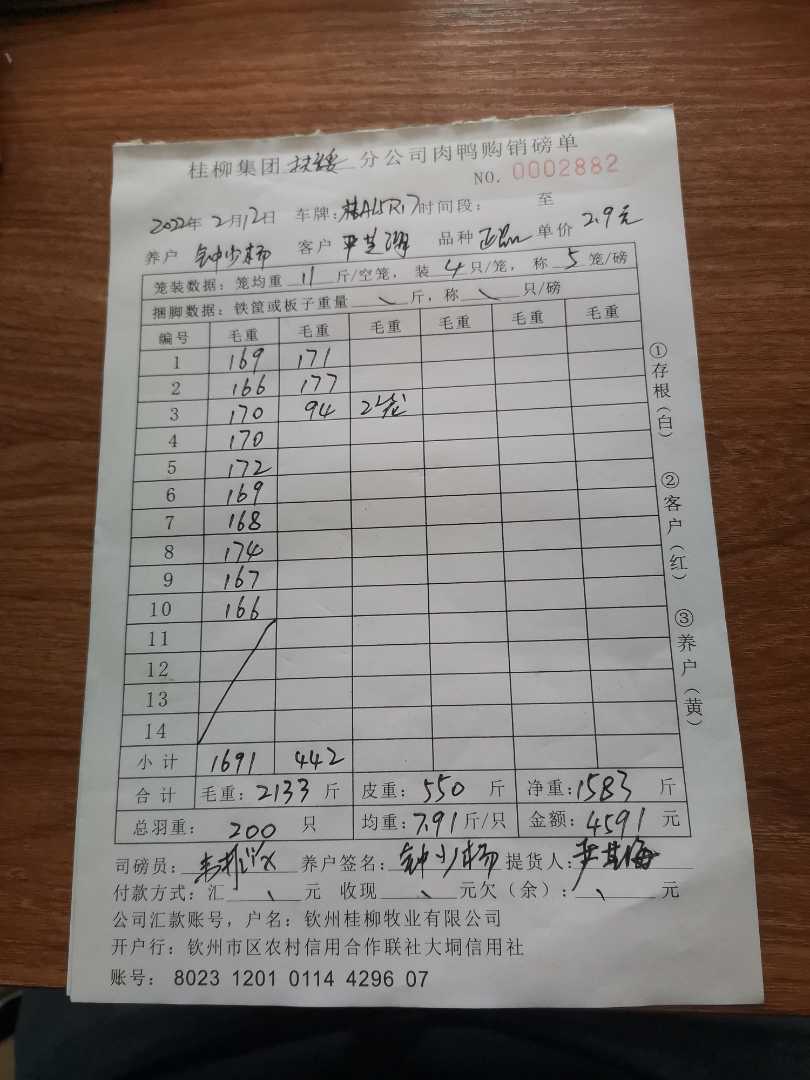 桂柳集团扶绥分公司肉鸭购销磅单
NO. 0002882
2022年2月12日 车牌:桂AL5R17 时间段: 至
养户 钟少杨 客户 品种 正品 单价 2.9元
笼装数据: 笼均重 11 斤/空笼, 装 4 只/笼, 称 5 笼/磅
捆脚数据: 铁筐或板子重量 \ 斤, 称 \ 只/磅
编号 毛重 毛重 毛重 毛重 毛重 毛重
1 169 171
2 166 177
3 170 94 2笼
4 170
5 172
6 169
7 168
8 174
9 167
10 166
11
12
13
14
小计 1691 442
合计 毛重: 2133 斤 皮重: 550 斤 净重: 1583 斤
总羽重: 200 只 均重: 7.91 斤/只 金额: 4591 元
司磅员: 养户签名: 钟少杨 提货人:
付款方式: 汇 \ 元 收现 \ 元 欠(余): \ 元
公司汇款账号, 户名: 钦州桂柳牧业有限公司
开户行: 钦州市区农村信用合作联社大垌信用社
账号: 8023 1201 0114 4296 07
①存根(白)
②客户(红)
③养户(黄)